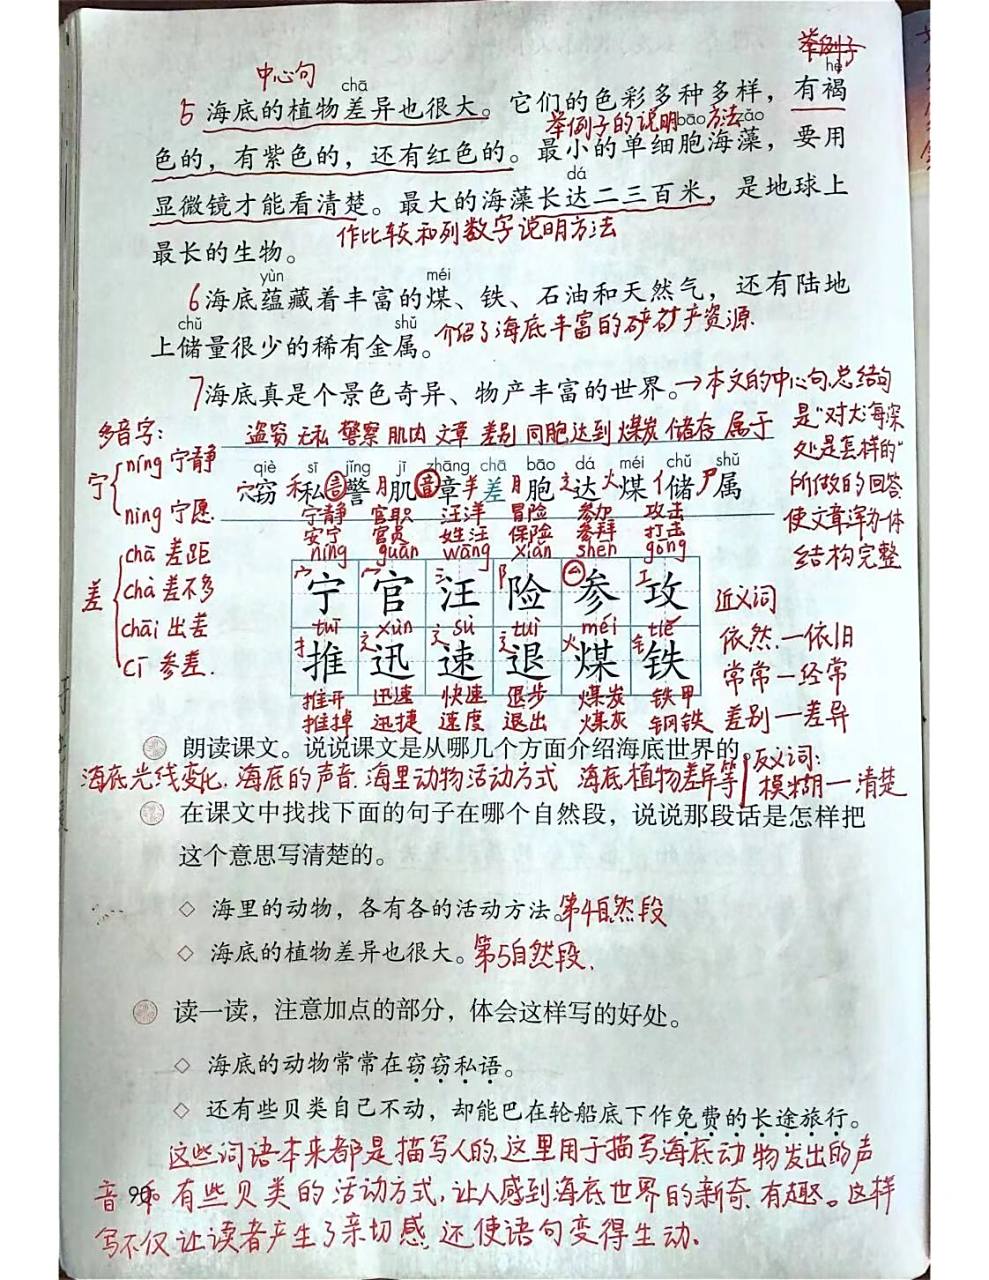 举例子
中心句
chā
hè
5 海底的植物差异也很大。它们的色彩多种多样，有褐
举例子的说明方法
bāo zǎo
色的，有紫色的，还有红色的。最小的单细胞海藻，要用
dá
显微镜才能看清楚。最大的海藻长达二三百米，是地球上
作比较和列数字说明方法
最长的生物。
yùn méi
6 海底蕴藏着丰富的煤、铁、石油和天然气，还有陆地
chǔ shǔ
上储量很少的稀有金属。
介绍了海底丰富的矿产资源.
7 海底真是个景色奇异、物产丰富的世界。→本文的中心句,总结句
是"对大海深
处是怎样的"
所做的回答.
使文章浑为一体
结构完整
多音字:
宁 níng 宁静
nìng 宁愿
差 chā 差距
chà 差不多
chāi 出差
cī 参差.
盗窃 无私 警察 肌肉 文章 差别 同胞 达到 煤炭 储存 属于
qiè sī jǐng jī zhāng chā bāo dá méi chǔ shǔ
穴窃 禾私 言警 月肌 音章 羊差 月胞 辶达 火煤 亻储 尸属
宁静 官职 汪洋 冒险 参加 攻击
安宁 官员 姓汪 保险 参拜 打击
níng guān wāng xiǎn shēn gōng
宀宁 宀官 氵汪 阝险 厶参 工攻
tuī xùn sù tuì méi tiě
扌推 辶迅 辶速 辶退 火煤 钅铁
推开 迅速 快速 退步 煤炭 铁甲
推掉 迅捷 速度 退出 煤灰 钢铁
近义词
依然.—依旧
常常—经常
差别—差异
反义词:
模糊—清楚
朗读课文。说说课文是从哪几个方面介绍海底世界的。
海底光线变化. 海底的声音. 海里动物活动方式 海底植物差异等
在课文中找找下面的句子在哪个自然段，说说那段话是怎样把
这个意思写清楚的。
◇ 海里的动物，各有各的活动方法。第4自然段
◇ 海底的植物差异也很大。第5自然段.
读一读，注意加点的部分，体会这样写的好处。
◇ 海底的动物常常在窃窃私语。
◇ 还有些贝类自己不动，却能巴在轮船底下作免费的长途旅行。
这些词语本来都是描写人的,这里用于描写海底动物发出的声
音和有些贝类的活动方式,让人感到海底世界的新奇、有趣。这样
写不仅让读者产生了亲切感,还使语句变得生动.